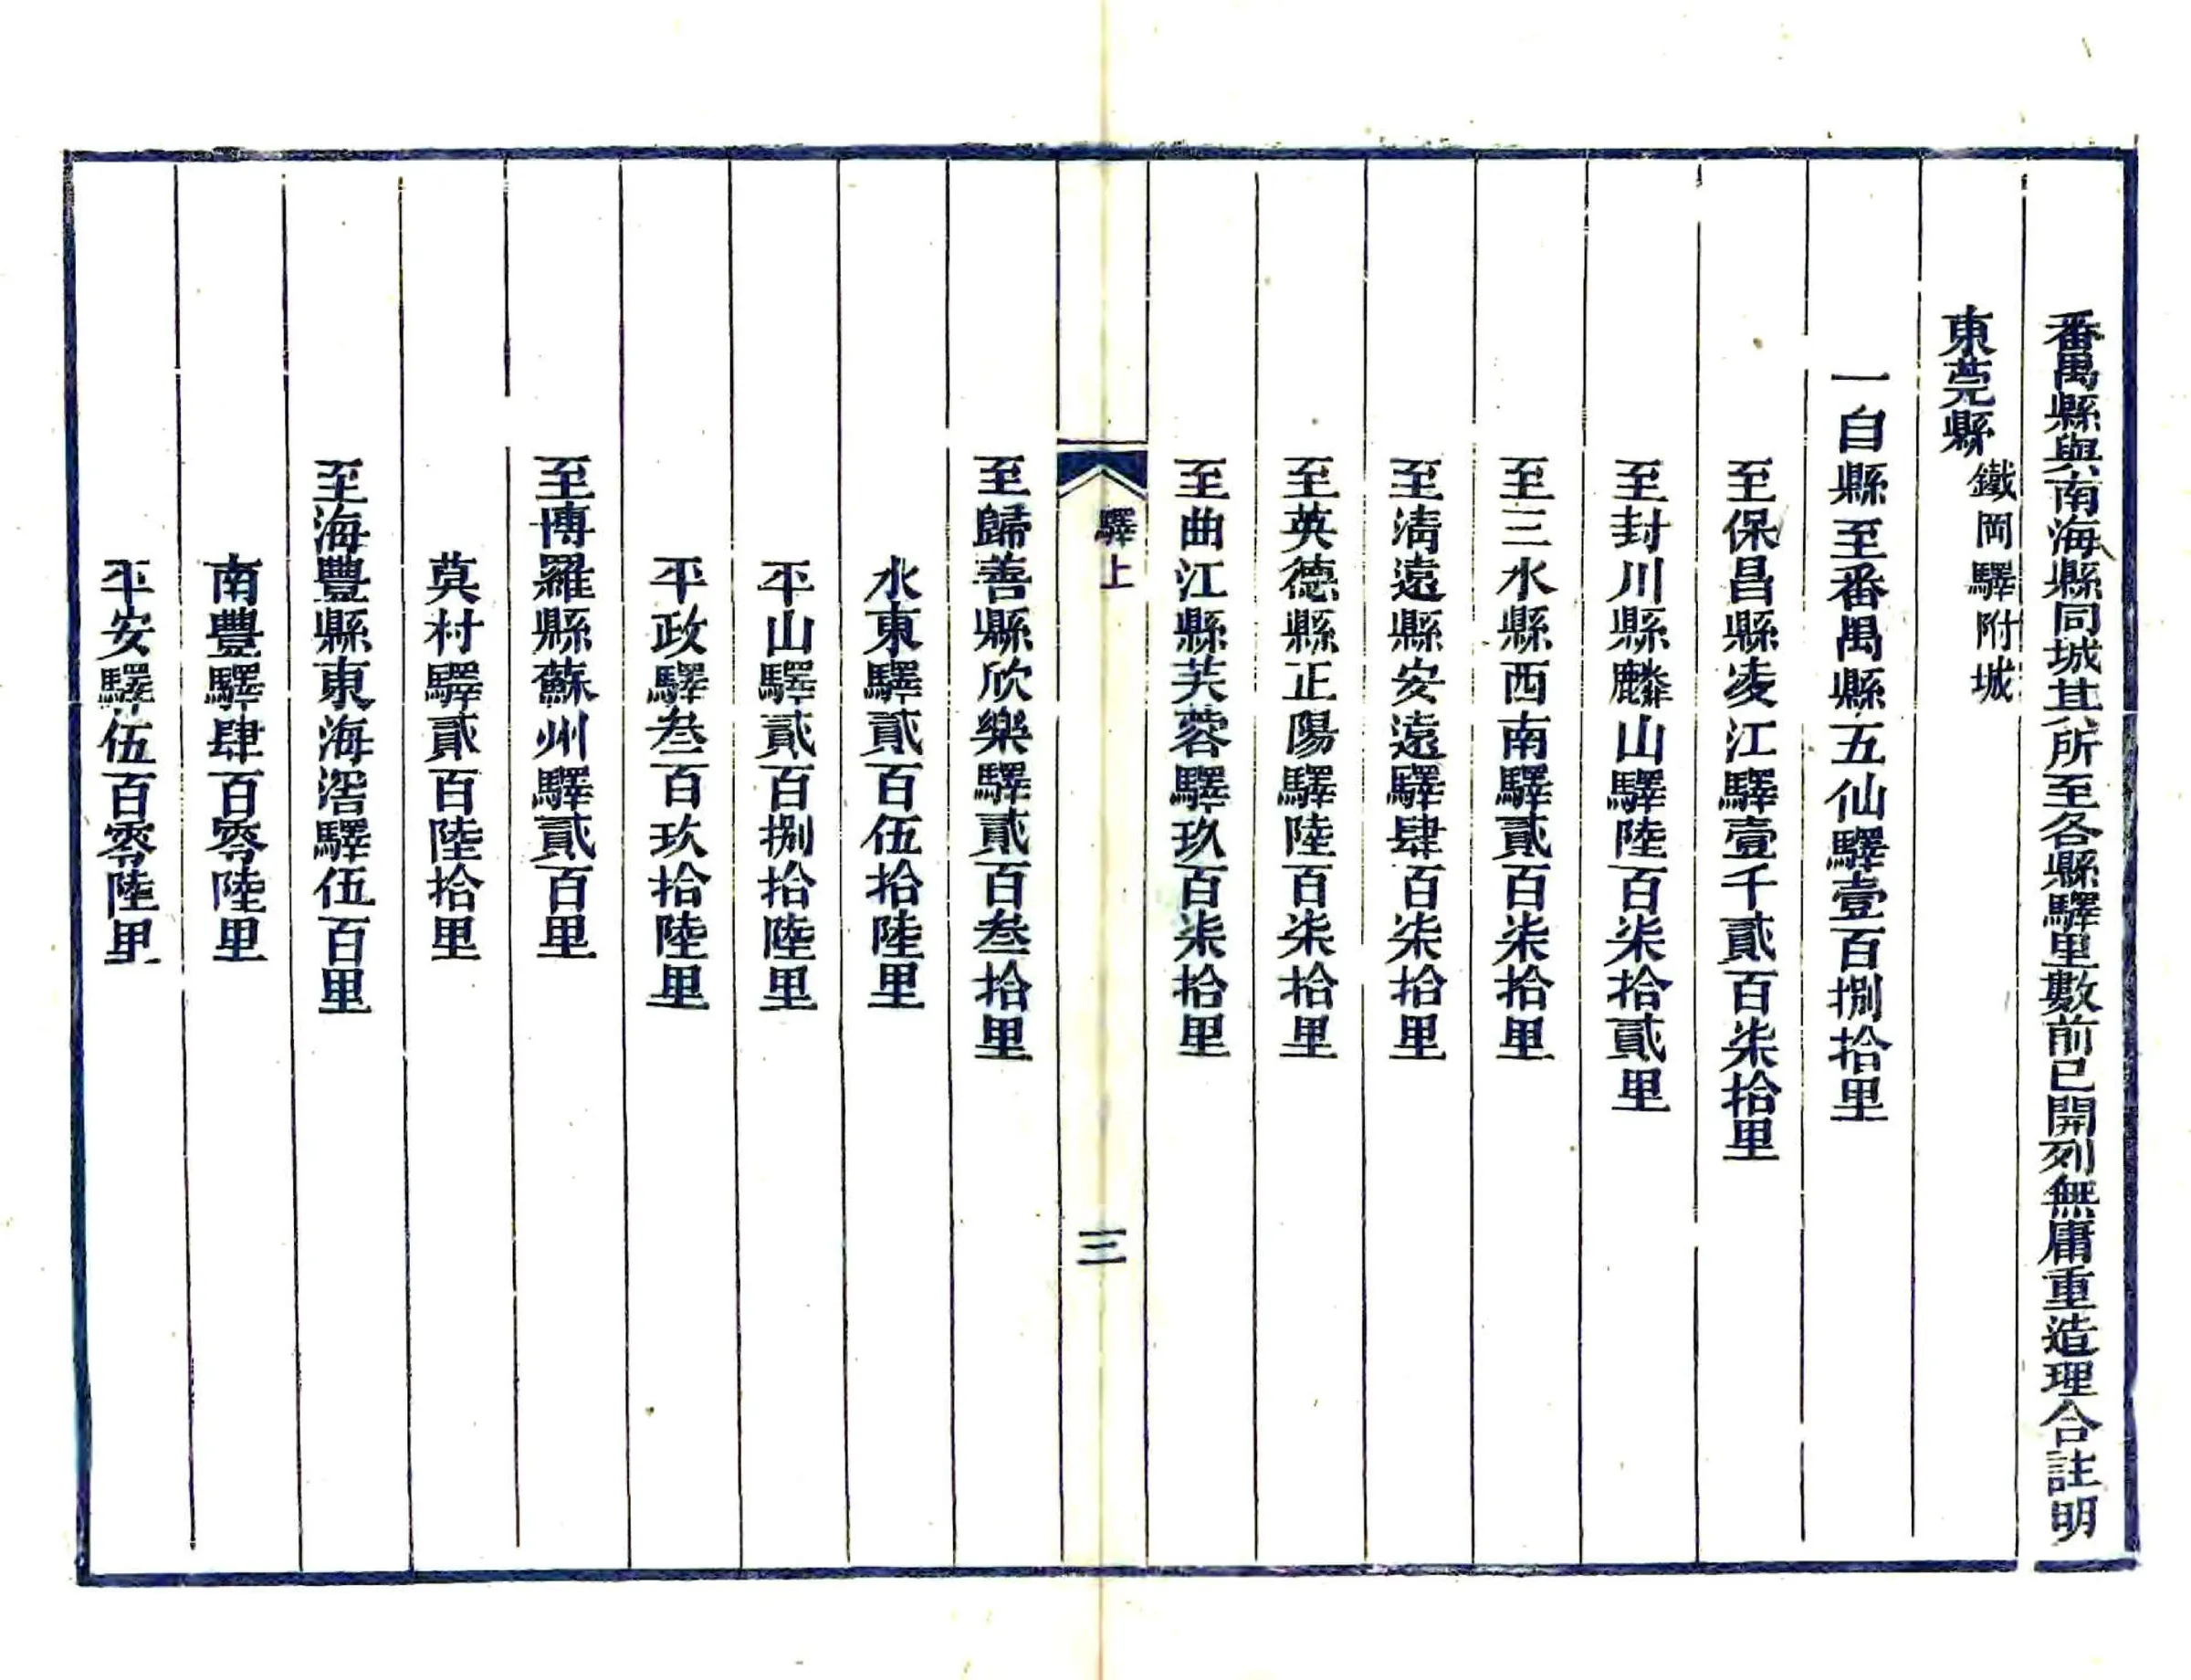 番禺縣與南海縣同城其所至各縣驛里數前已開列無庸重造理合註明
東莞縣 鐵岡驛附城
一自縣至番禺縣五仙驛壹百捌拾里
至保昌縣凌江驛壹千貳百柒拾里
至封川縣麟山驛陸百柒拾貳里
至三水縣西南驛貳百柒拾里
至清遠縣安遠驛肆百柒拾里
至英德縣正陽驛陸百柒拾里
至曲江縣芙蓉驛玖百柒拾里
驛上
三
至歸善縣欣樂驛貳百叁拾里
水東驛貳百伍拾陸里
平山驛貳百捌拾陸里
平政驛叁百玖拾陸里
至博羅縣蘇州驛貳百里
莫村驛貳百陸拾里
至海豐縣東海滘驛伍百里
南豐驛肆百零陸里
平安驛伍百零陸里